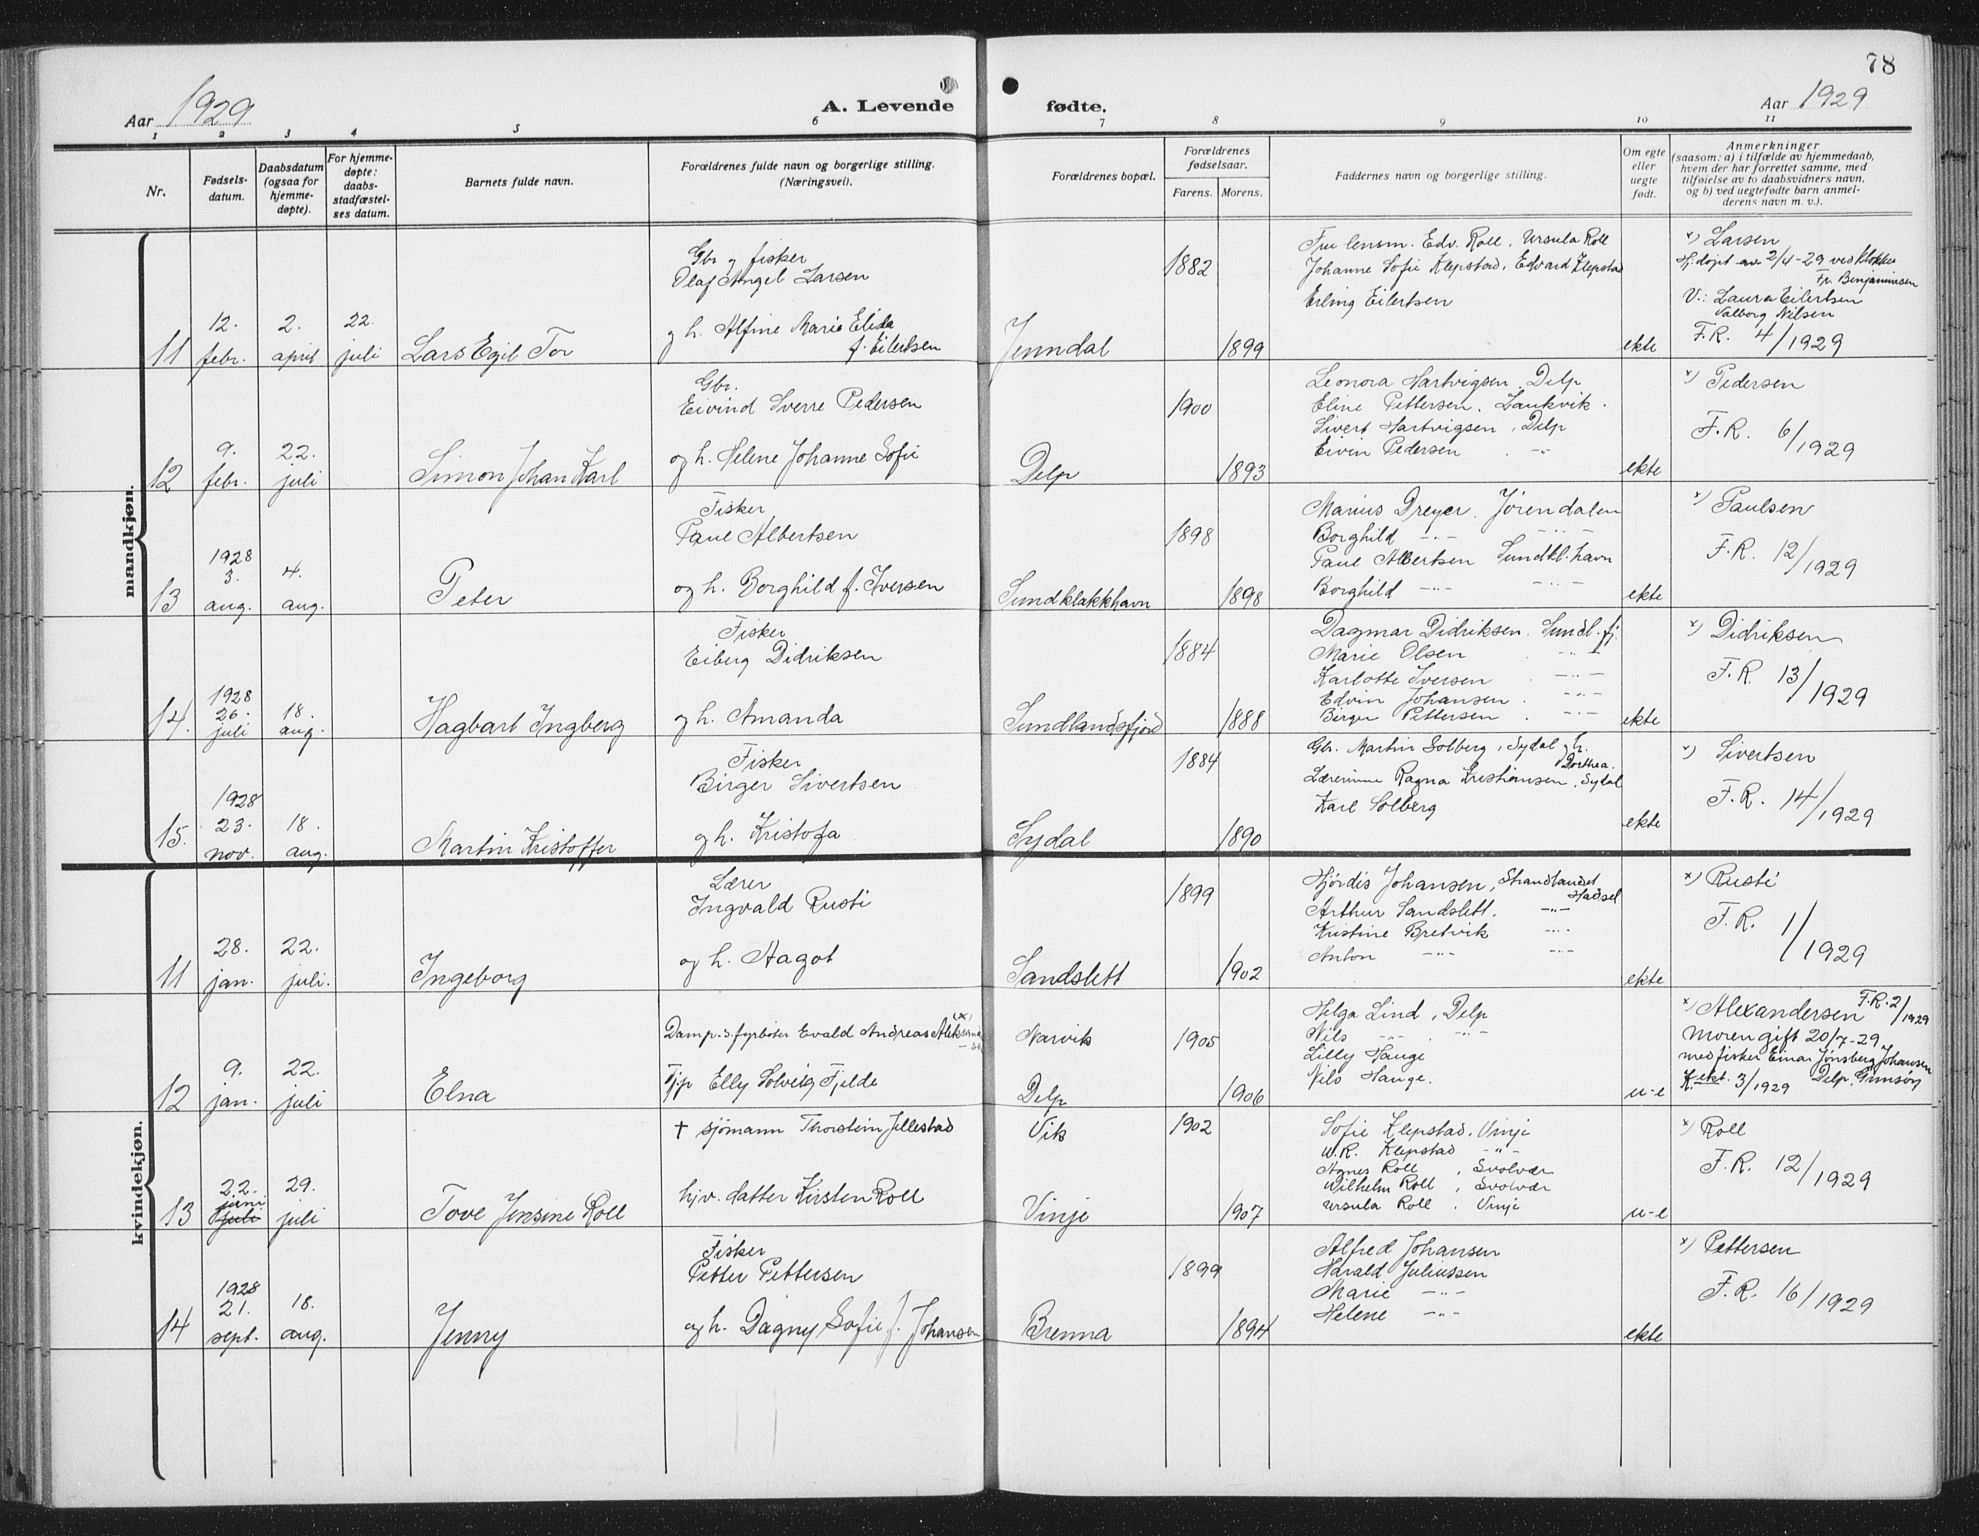 78
Aar 1929
A. Levende fødte.
Aar 1929
1 2 3 4 5 6 7 8 9 10 11
Nr.
Fødsels-
datum.
Daabsdatum
(ogsaa for
hjemme-
døpte).
For hjemme-
døpte:
daabs-
stadfæstel-
ses datum.
Barnets fulde navn.
Forældrenes fulde navn og borgerlige stilling.
(Næringsvei).
Forældrenes bopæl.
Forældrenes
fødselsaar.
Farens. Morens.
Faddernes navn og borgerlige stilling.
Om egte
eller
uegte
født.
Anmerkninger
(saasom: a) i tilfælde av hjemmedaab,
hvem der har forrettet samme, med
tilføielse av to daabsvidners navn,
og b) ved uegtefødte barn anmel-
derens navn m. v.).
mandkjøn.
11
12.
febr.
2.
april
22.
juli
Lars Egil Tor
Gbr og fisker
Olaf Angel Larsen
og h. Alfine Marie Elida
f. Eilertsen
Jenndal
1882
1899
Fru lensm. Edv. Roll, Ursula Roll
Johanne Sofie Klepstad, Edvard Klepstad
Erling Eilertsen
ekte
x) Larsen
Hj.døpt av 2/4-29 ved klokker
Fr. Benjaminsen
V.: Laura Eilertsen
Valborg Nilsen
F.R. 4/1929
12
9.
febr.
22.
juli
Simon Johan Karl
Gbr.
Eivind Sverre Pedersen
og h. Helene Johanne Sofie
Delp
1900
1893
Leonora Hartvigsen, Delp
Eline Pettersen, Laukvik.
Sivert Hartvigsen, Delp
Eivin Pedersen -"-
ekte
x) Pedersen
F.R. 6/1929
13
1928
3.
aug.
4.
aug.
Peter
Fisker
Paul Albertsen
og h. Borghild f. Iversen
Sundklakkhavn
1898
1898
Marius Dreyer, Jørendalen
Borghild -"- -"-
Paul Albertsen Sundkl.havn
Borghild -"- -"-
ekte
x) Paulsen
F.R. 12/1929
14.
1928
26.
juli
18.
aug.
Hagbart Ingberg
Fisker
Eiberg Didriksen
og h. Amanda
Sundlandsfjord
1884
1888
Dagmar Didriksen, Sundl.fj.
Marie Olsen -"-
Karlotte Iversen -"-
Edvin Johansen -"-
Birger Pettersen -"-
ekte
x) Didriksen
F.R. 13/1929
15.
1928
23.
nov.
18.
aug.
Martin Kristoffer
Fisker
Birger Sivertsen
og h. Kristofa
Sydal
1884
1890
Gbr. Martin Solberg, Sydal og h.
Dorthea.
Lærerinne Ragna Kristiansen, Sydal
Karl Solberg
ekte
x) Sivertsen
F.R. 14/1929
kvindekjøn.
11
28.
jan.
22.
juli.
Ingeborg
Lærer
Ingvald Rusti
og h. Aagot
Sandslett
1899
1902
Hjørdis Johansen, Strandlandet
Hadsel
Arthur Sandslett. -"-
Kristine Bretvik -"-
Anton -"- -"-
ekte
x) Rusti
F.R. 1/1929
12
9.
jan.
22.
juli
Elna
Damp.s.fyrbøter Evald Andreas
Tjp Elly Solveig Fjelde
Narvik
Delp
1905
1906
Helga Lind, Delp
Nils -"- -"-
Lilly Hauge
Nils Hauge.
u-e
x) Alexandersen F.R. 2/1929
Moren gift 20/7-29
med fisker Einar Jønsberg Johansen
K.ekt. 3/1929 Delp, Gimsøy
13
22.
juni
juli
29.
juli
Tove Jensine Roll
† sjømann Thorstein Jellestad
hjv. datter Kirsten Roll
Vik
Vinje
1902
1907
Sofie Klepstad, Vinje
W.R. Klepstad -"-
Agnes Roll, Svolvær
Wilhelm Roll, Svolvær
Ursula Roll, Vinje
u-e
x) Roll
F.R. 12/1929
14
1928
21.
sept.
18.
aug.
Jenny
Fisker
Petter Pettersen
og h. Dagny Sofie f. Johansen
Brenna
1899
1894
Alfred Johansen
Harald Juliussen
Marie -"-
Helene -"-
ekte
x) Pettersen
F.R. 16/1929